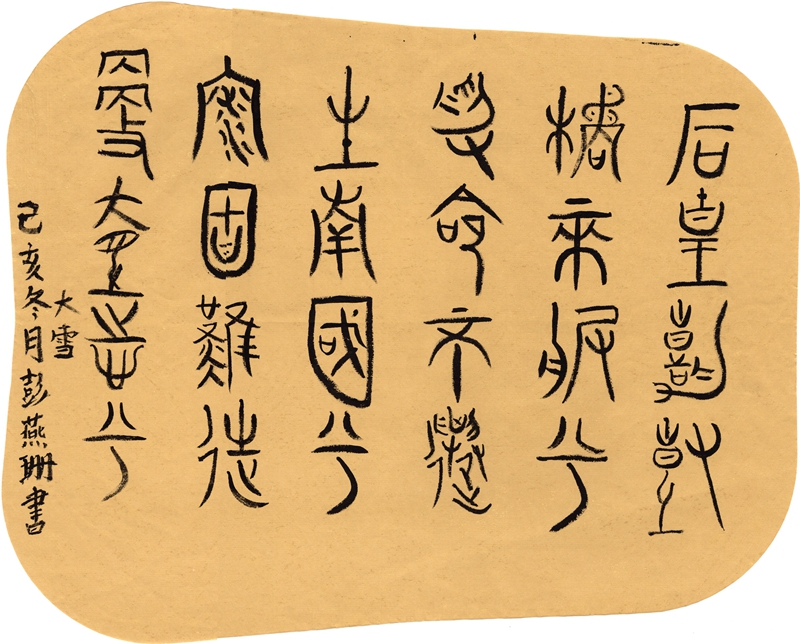 后皇嘉樹
橘來服兮
受命不遷
生南國兮
深固難徙
更壹志兮
大雪
己亥冬月彭燕珊書